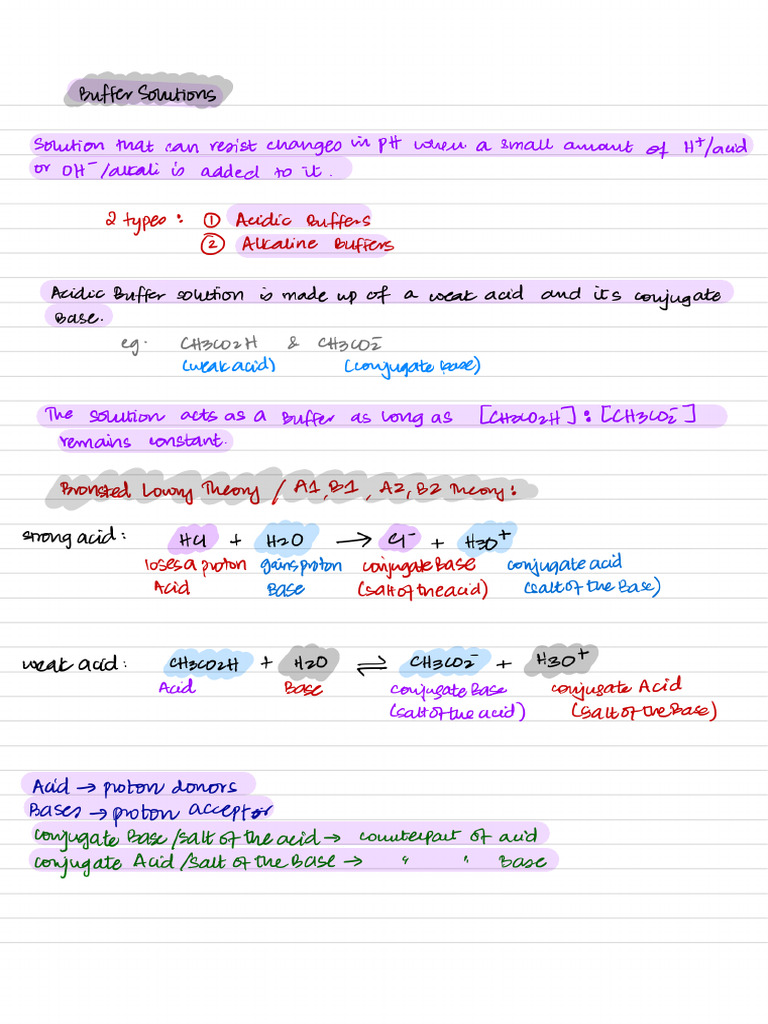 Buffer Solutions
Solution that can resist changes in pH when a small amount of H⁺/acid
or OH⁻/alkali is added to it.
2 types: ① Acidic Buffers
② Alkaline Buffers
Acidic Buffer solution is made up of a weak acid and its conjugate
Base.
eg. CH3CO2H & CH3CO2⁻
(weak acid) (conjugate base)
The solution acts as a Buffer as long as [CH3CO2H] : [CH3CO2⁻]
remains constant.
Bronsted Lowry Theory / A1, B1, A2, B2 Theory:
strong acid: HCl + H2O → Cl⁻ + H3O⁺
loses a proton gains proton conjugate Base conjugate acid
Acid Base (salt of the acid) (salt of the Base)
weak acid: CH3CO2H + H2O ⇌ CH3CO2⁻ + H3O⁺
Acid Base conjugate Base conjugate Acid
(salt of the acid) (salt of the Base)
Acid → proton donors
Bases → proton acceptor
conjugate Base/salt of the acid → counterpart of acid
conjugate Acid/salt of the Base → " " Base